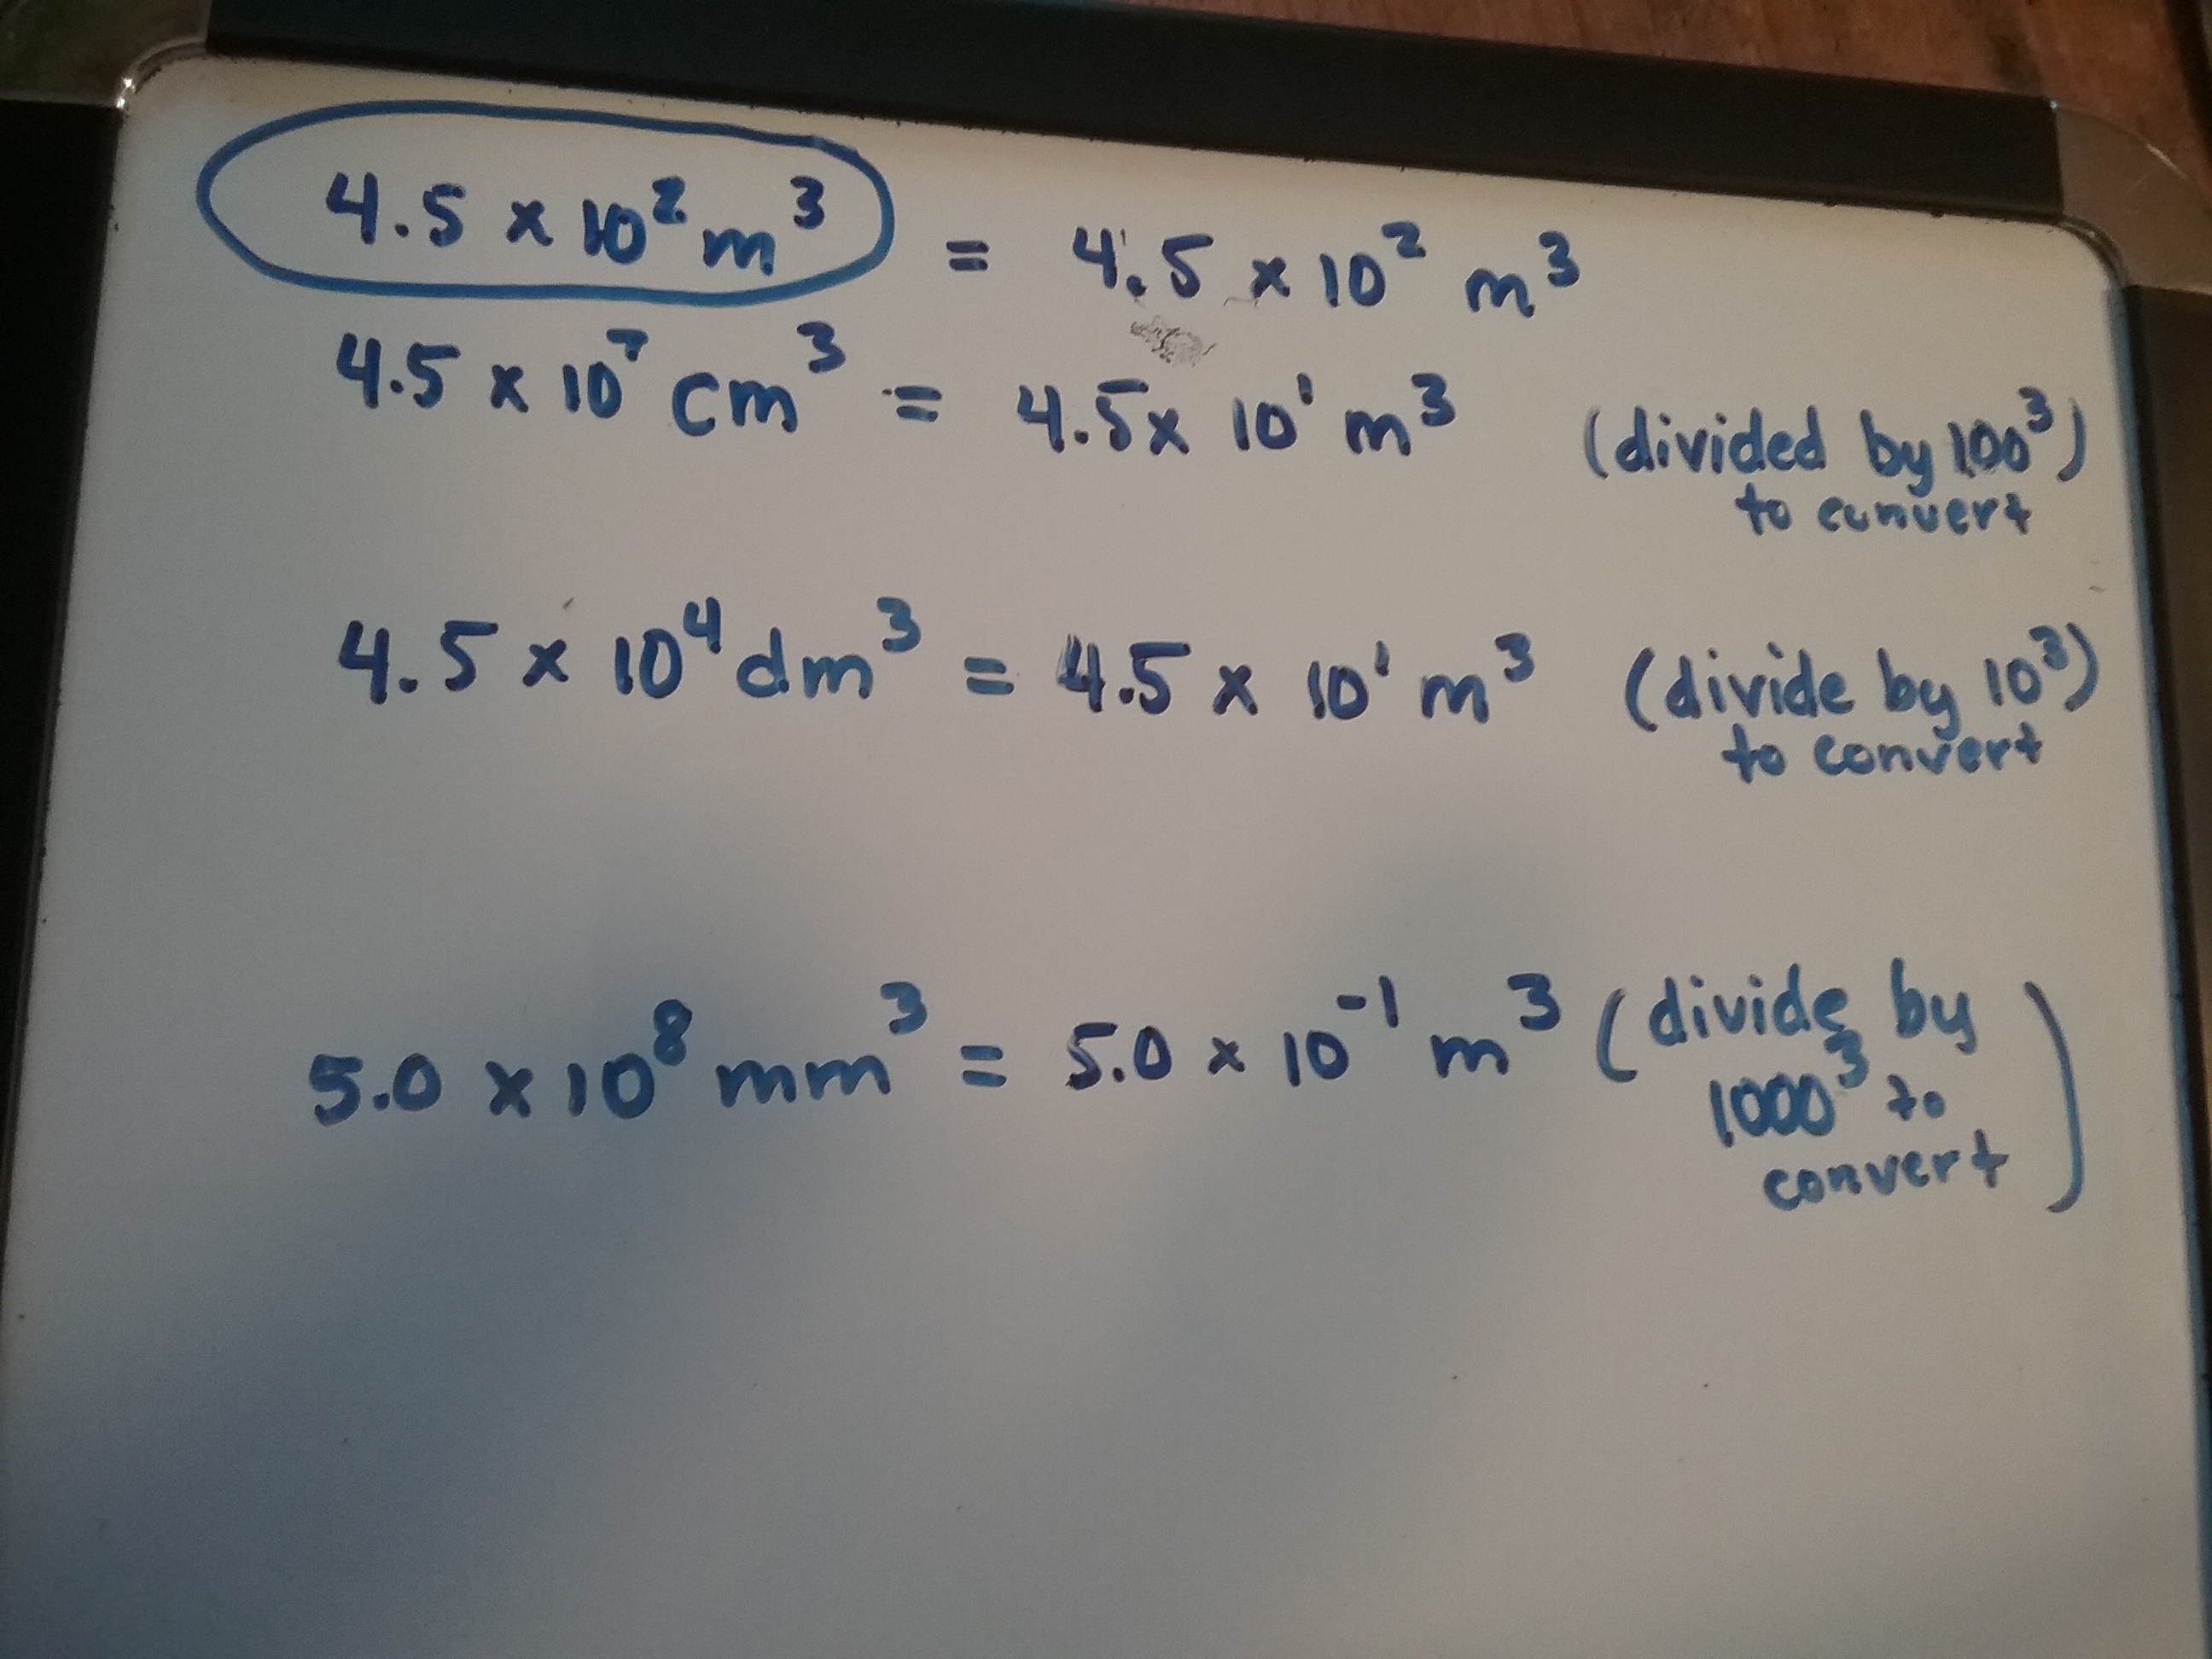 4.5 x 10² m³ = 4.5 x 10² m³
4.5 x 10⁷ cm³ = 4.5 x 10¹ m³ (divided by 100³)
to convert
4.5 x 10⁴ dm³ = 4.5 x 10¹ m³ (divide by 10³)
to convert
5.0 x 10⁸ mm³ = 5.0 x 10⁻¹ m³ (divide by
1000³ to
convert)